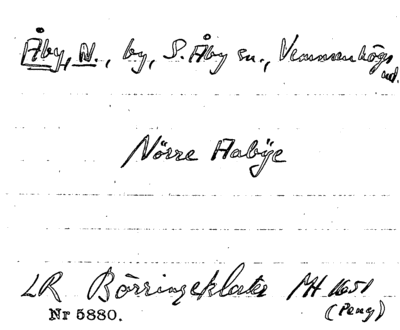 Åby, N., by, S. Åby sn., Vemmenhögs
hd.
Nörre Aabÿe
LR Börringekloster MH 1651
Nr 5880. (Peng)